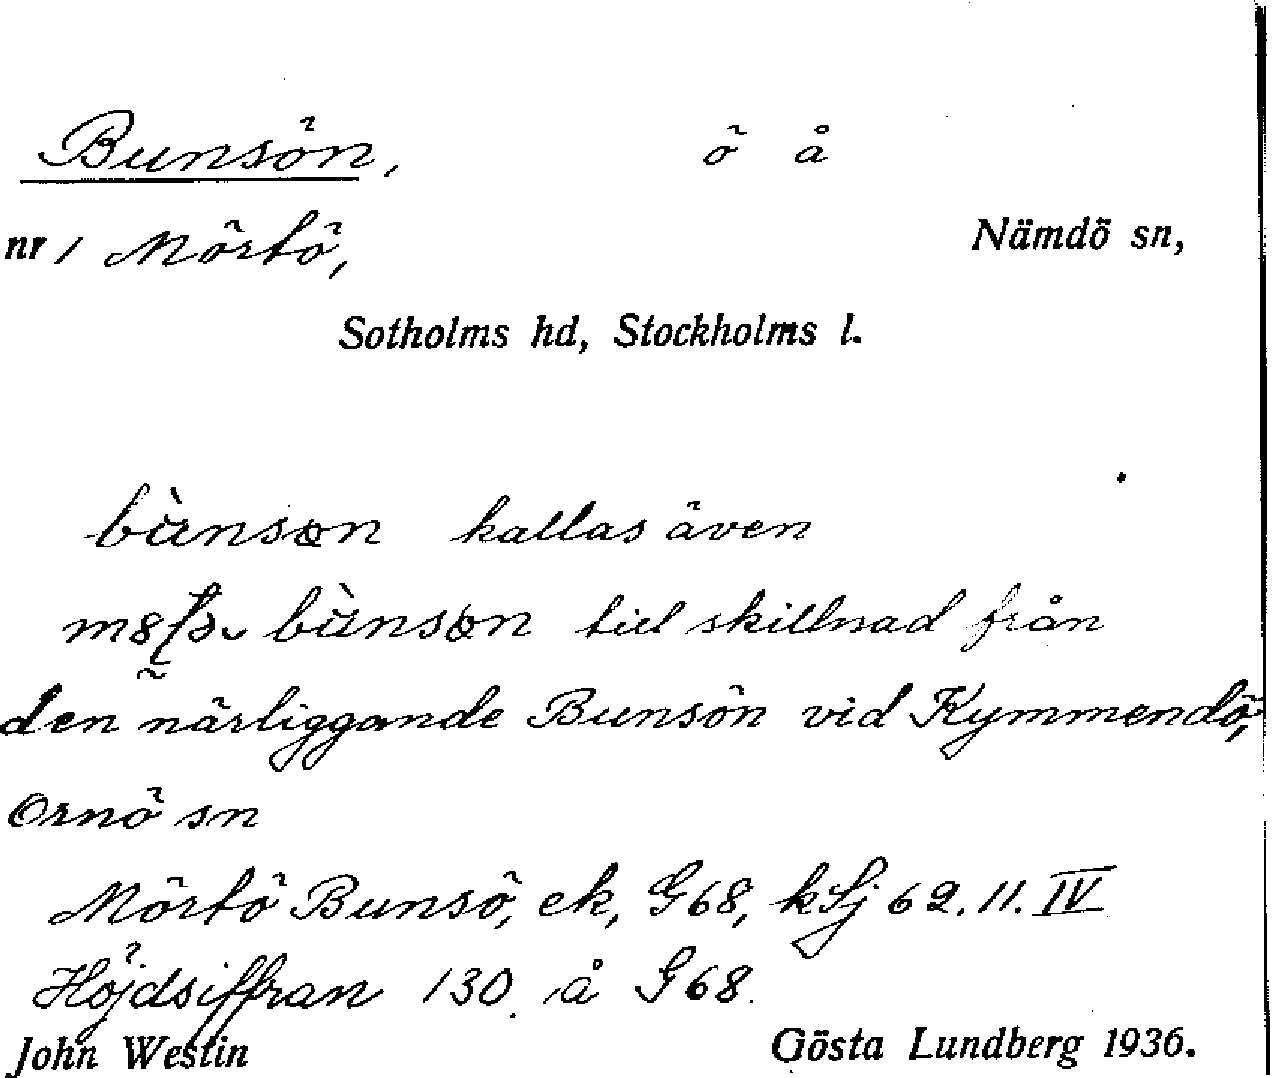 Bunsön, ö å
nr 1 Mörtö, Nämdö sn,
Sotholms hd, Stockholms l.
bùnsɷn kallas även
bùnsɷn till skillnad från
den närliggande Bunsön vid Kymmendö,
Ornö sn
Mörtö Bunsö, ek, G68, kSj 62.11.IV
Höjdsiffran 130 å G68.
John Westin Gösta Lundberg 1936.